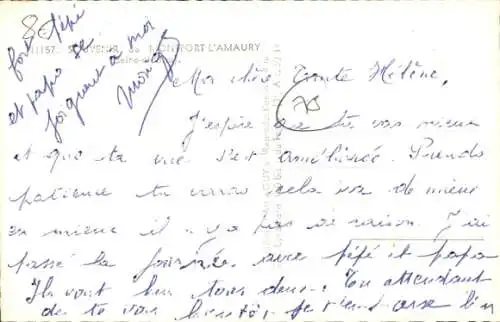 11157. SOUVENIR de MONTFORT L'AMAURY
fort pépé
et papa se
joignent à moi
Ma chère Tante Hélène,
J'espère que tu vas mieux
et que ta vue s'est améliorée. Prends
patience tu verras cela va de mieux
en mieux il y a pas de raison. J'ai
passé la journée avec pépé et papa
Ils vont bien tous deux. En attendant
de te voir bientôt, je t'embrasse bien